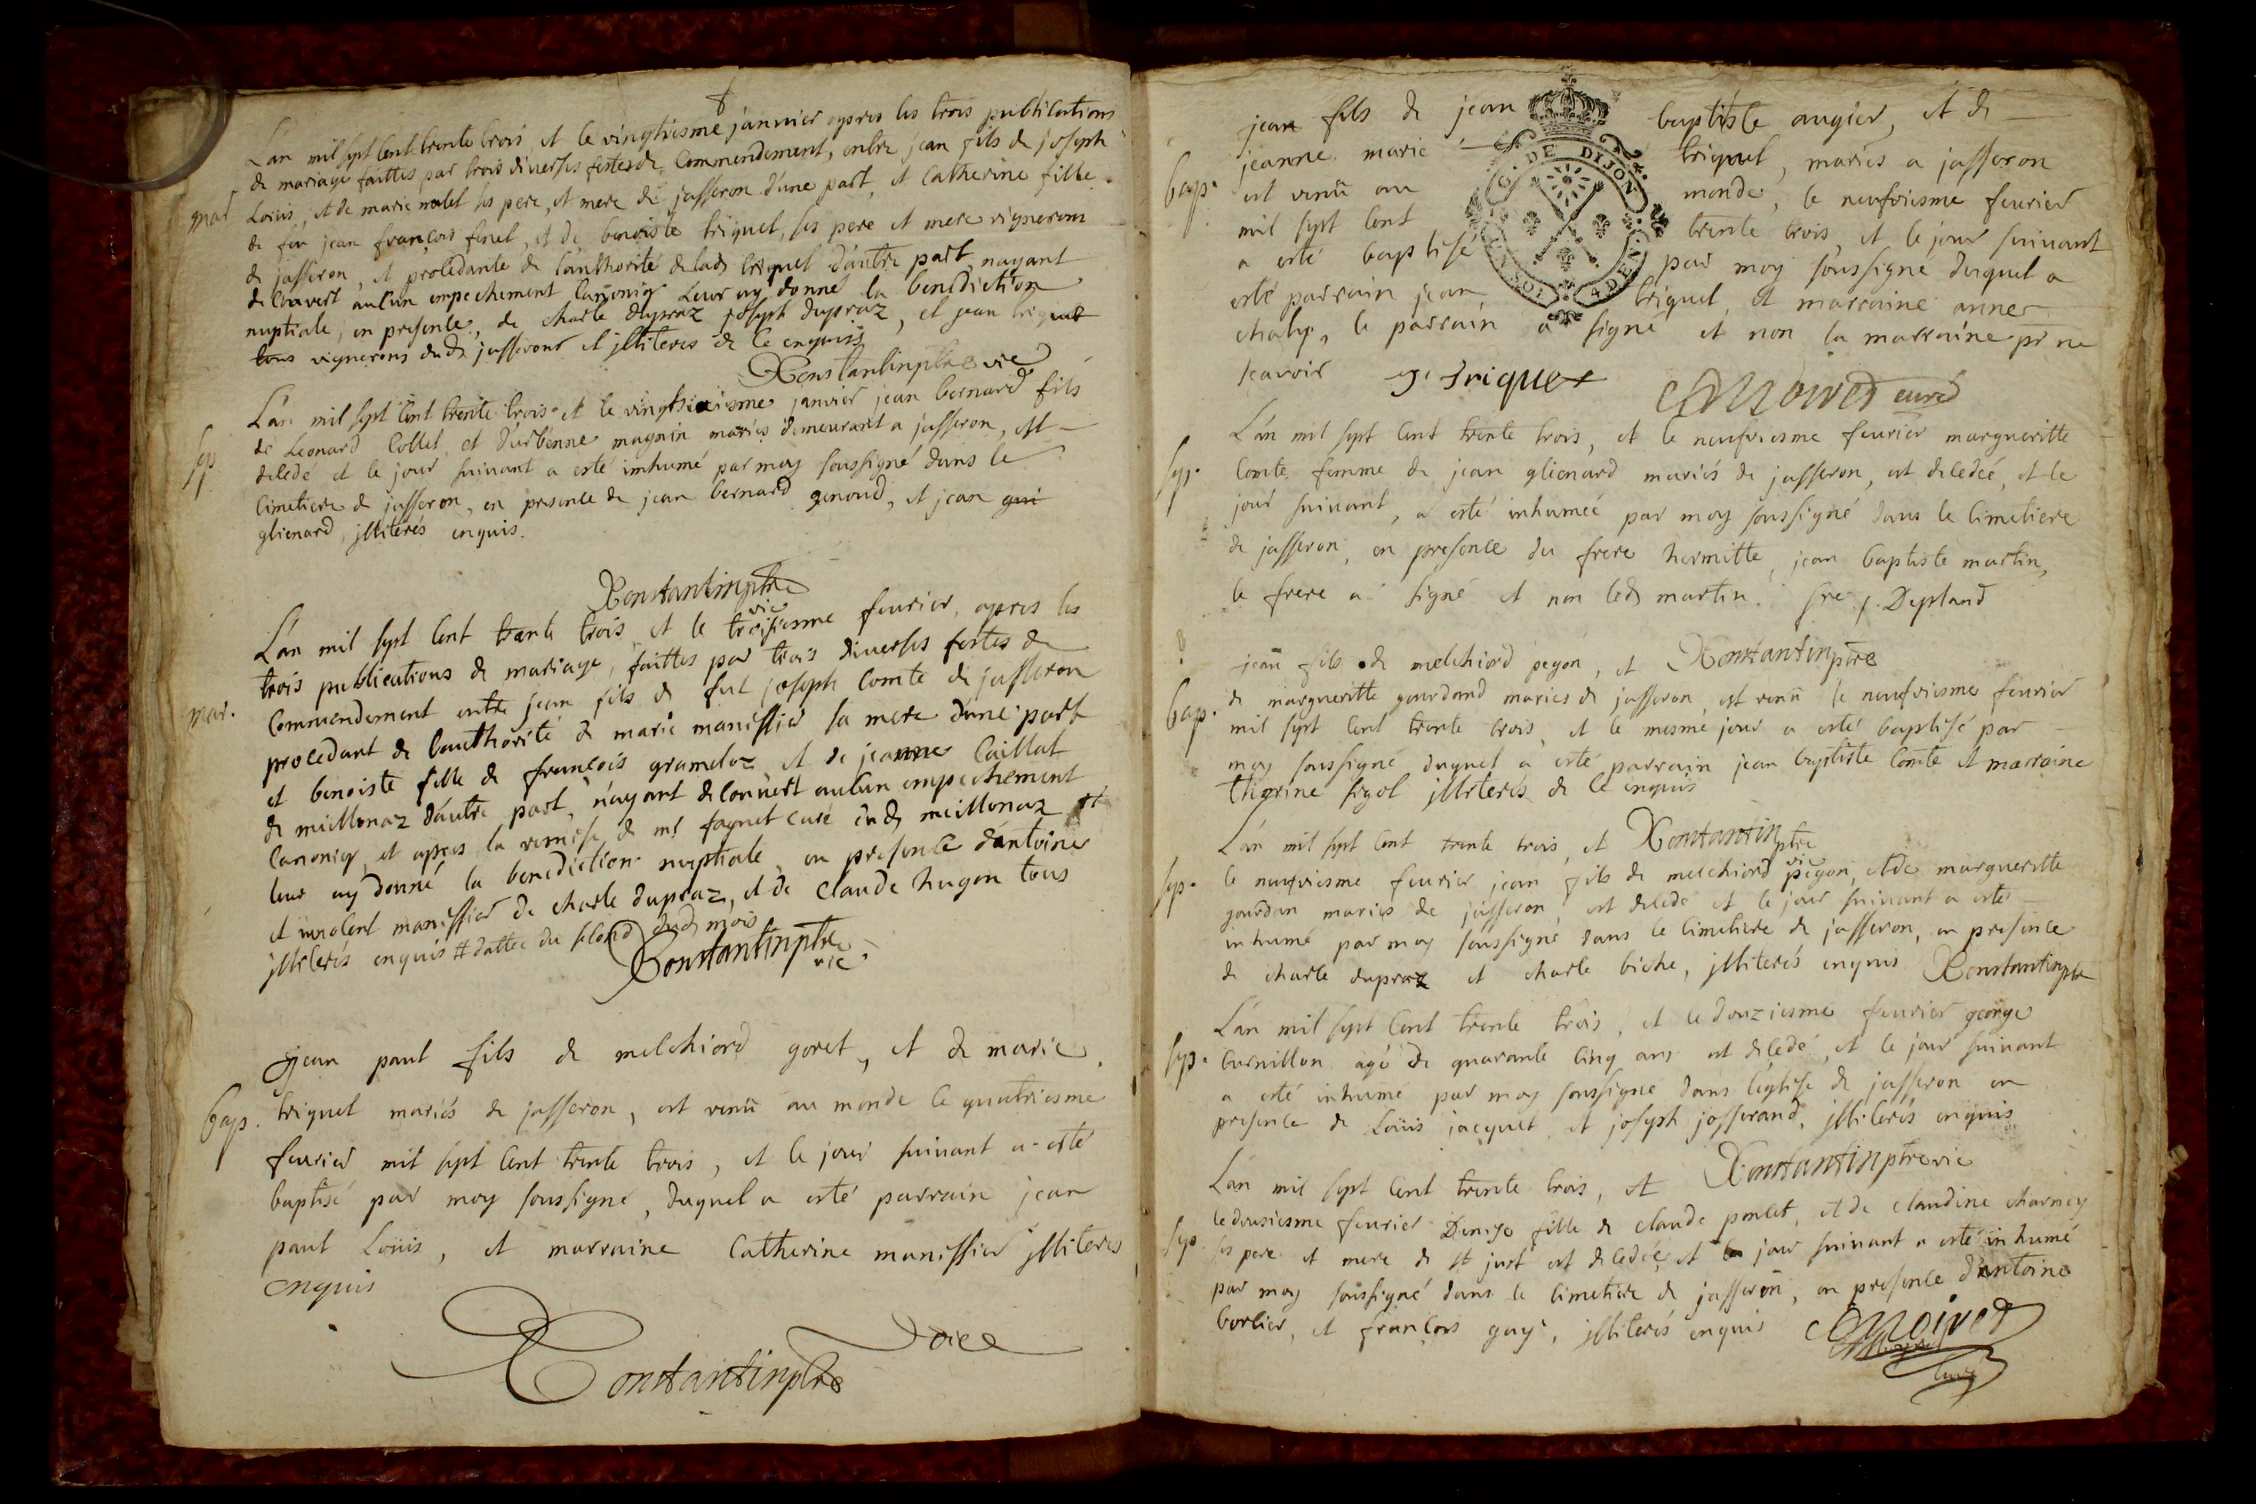 L'an mil sept cent trente trois et le vingtiesme janvier apres les trois publications
de mariage faittes par trois diverses festes de commendement, entre jean fils de joseph
mar. Loüis, et de marie ses pere, et mere de jasseron d'une part, et Catherine fille
de feu jean françois et de benoiste triquet, ses pere et mere vignerons
de jasseron, et procedante de l'authorité de lad triquet d'autre part, nayant
decouvert aucun empechement canoniq Leur ay donné la benediction
nuptiale, en presence, de charle dupraz joseph dupraz, et jean triquet
tous vignerons dud jasseront et jlliteres de ce enquis
Constantin ptre vic
L'an mil sept cent trente trois et le janvier jean bernard fils
sep de Leonard Collet et d'urbenne magnin mariés demeurant a jasseron, est
decedé et le jour suivant a esté inhumé par moy soussigné dans le
cimetiere de jasseron, en presence de jean bernard genoud, et jean
glienard, jlliterés enquis.
Constantin ptre
vic
L'an mil sept cent trente trois et le troisiesme feurier, apres les
trois publications de mariage, faittes par trois diverses festes de
mar. Commendement entre jean fils de feu joseph Comte de jasseron
procedant de l'authorité de marie manissier sa mere d'une part
et benoiste fille de françois grameloz et de jeanne Caillat
de meillonaz d'autre part, n'ayant decouuert aucun empechement
Canoniq, et apres la remise de mr faguet curé dud meillonaz et
leur ay donné la benediction nuptiale, en presence d'antoine
et innocent manissier de charle dupraz, et de claude hugon tous
jlliterés enquis # dattee du second dud mois
Constantin ptre
vic.
jean paul fils de melchiord goret, et de marie
bap. triquet mariés de jasseron, est venü au monde le quatriesme
feurier mil sept cent trente trois, et le jour suivant a esté
baptisé par moy soussigné, duquel a esté parrain jean
paul Loüis, et marraine Catherine manissier jlliteres
enquis
Constantin ptre vice
jean fils de jean baptiste augier, et de
bap. jeanne marie triquet, mariés a jasseron
est venü au monde, le neufviesme feurier
mil sept cent trente trois, et le jour suivant
a esté baptisé par moy soussigné duquel a
esté parrain jean triquet, et marraine anne
le parrain a signé et non la marraine pr ne
scavoir triquet curé
C. DE DIJON
4 DEN
L'an mil sept cent trente trois, et le neufviesme feurier margueritte
sep. Comte femme de jean glienard mariés de jasseron, est decedée, et le
jour suivant, a esté inhumée par moy soussigné dans le cimetiere
de jasseron, en presence du frere hermitte, jean baptiste martin,
le frere a signé et non led martin. fre j. Depland
jean fils de melchiord pegon, et Constantin ptre
bap. de margueritte gourdand mariés de jasseron, est venü le neufviesme feurier
mil sept cent trente trois, et le mesme jour a esté baptisé par
moy soussigné duquel a esté parrain jean baptiste Comte et marraine
jlliterés de ce enquis
L'an mil sept cent trente trois, et Constantin ptre
vic
sep. le neufviesme feurier jean fils de melchiord pegon, et de margueritte
gourdan mariés de jasseron, est decedé et le jour suivant a esté
inhumé par moy soussigné dans le cimetiere de jasseron, en presence
de charle dupraz et charle biche, jlliterés enquis Constantin ptre
L'an mil sept cent trente trois, et le douziesme feurier george
sep. Curnillon agé de quarante cinq ans est decedé, et le jour suivant
a esté inhumé par moy soussigné dans l'église de jasseron en
presence de Loüis jacquet et joseph josserand, jlliterés enquis
L'an mil sept cent trente trois, et Constantin ptre vic
le dousiesme feurier Denise fille de claude poncet, et de claudine charney
sep. ses pere et mere de st just est decedée, et le jour suivant a esté inhumé
par moy soussigné dans le cimetiere de jasseron, en presence d'antoine
borlier, et françois guy, jlliterés enquis
curé